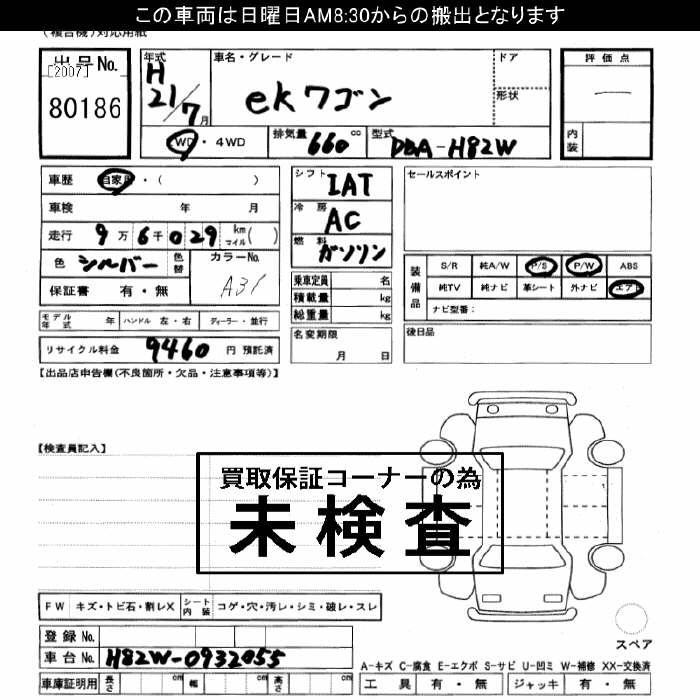 この車両は日曜日AM8:30からの搬出となります
(複合機)対応用紙
出品No. [2007] 80186
年式 H 21/7月 車名・グレード ekワゴン ドア 形状
評価点 — 内装
2WD・4WD 排気量 660 cc 型式 DBA-H82W
車歴 自家用・( )
車検 年 月
走行 9万6千029 km マイル( )
色 シルバー 色替 カラーNo. A31
保証書 有・無
シフト IAT
冷房 AC
燃料 ガソリン
乗車定員 名
積載量 kg
総重量 kg
セールスポイント
装備品 S/R 純A/W P/S P/W ABS
純TV 純ナビ 革シート 外ナビ エアB
ナビ型番:
モデル年式 年 ハンドル 左・右 ディーラー・並行
リサイクル料金 9460 円 預託済
名変期限 月 日
後日品
【出品店申告欄(不良箇所・欠品・注意事項等)】
【検査員記入】
買取保証コーナーの為
未検査
FW キズ・トビ石・割レX シート内装 コゲ・穴・汚レ・シミ・破レ・スレ
登録No.
車台No. H82W-0932055
スペア
A-キズ C-腐食 E-エクボ S-サビ U-凹ミ W-補修 XX-交換済
車庫証明用 長さ cm 幅 cm 高さ cm
工具 有・無 ジャッキ 有・無